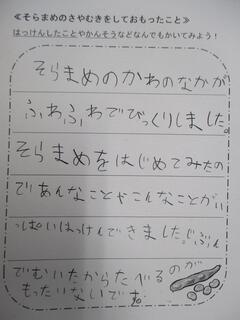 ≪そらまめのさやむきをしておもったこと≫
はっけんしたことやかんそうなどなんでもかいてみよう！
そらまめのかわのなかが
ふわふわでびっくりしました。
そらまめをはじめてみたの
であんなことやこんなことがい
っぱいはっけんできました。じぶん
でむいたからたべるのが
もったいないです。